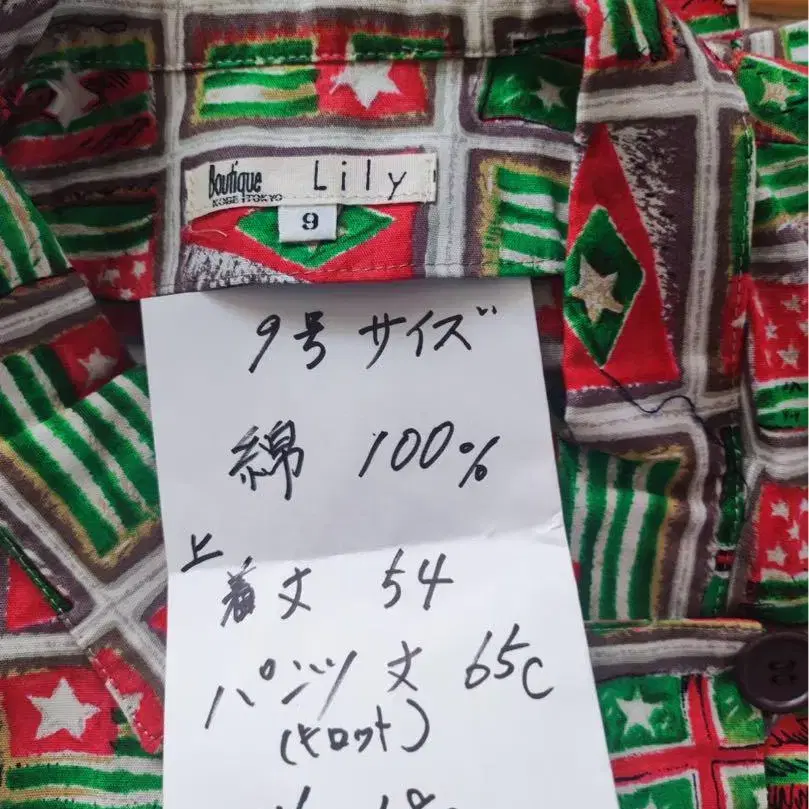 Boutique Lily
KOBE・TOKYO
9
9号サイズ
綿 100%
上着丈 54
パンツ丈 65c
(キロット)